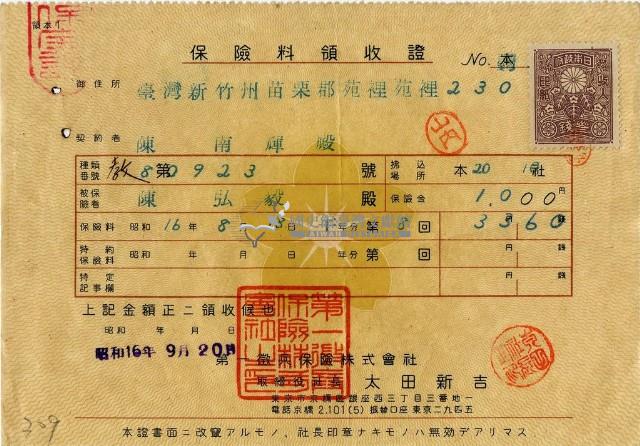 領本1
保險料領收證
No. 本
御住所 臺灣新竹州苗栗郡苑裡苑裡230
契約者 陳南輝殿
種類番號 教 第80923號 拂込所 本20 社
被保險者 陳弘毅殿 保險金 1,000円
保險料 昭和16年8月 日 年分第8回 3円360錢
特約保險料 昭和 年 月 日 年分第 回 円 錢
特定記事欄 円 錢
上記金額正ニ領收候也
昭和 年 月 日
昭和16年9月20日
第一徵兵保險株式會社
取締役社長 太田新吉
東京市京橋區銀座西三丁目三番地一
電話京橋2.101(5) 振替口座東京二九四五
209
本證書面ニ改竄アルモノ、社長印章ナキモノハ無効デアリマス